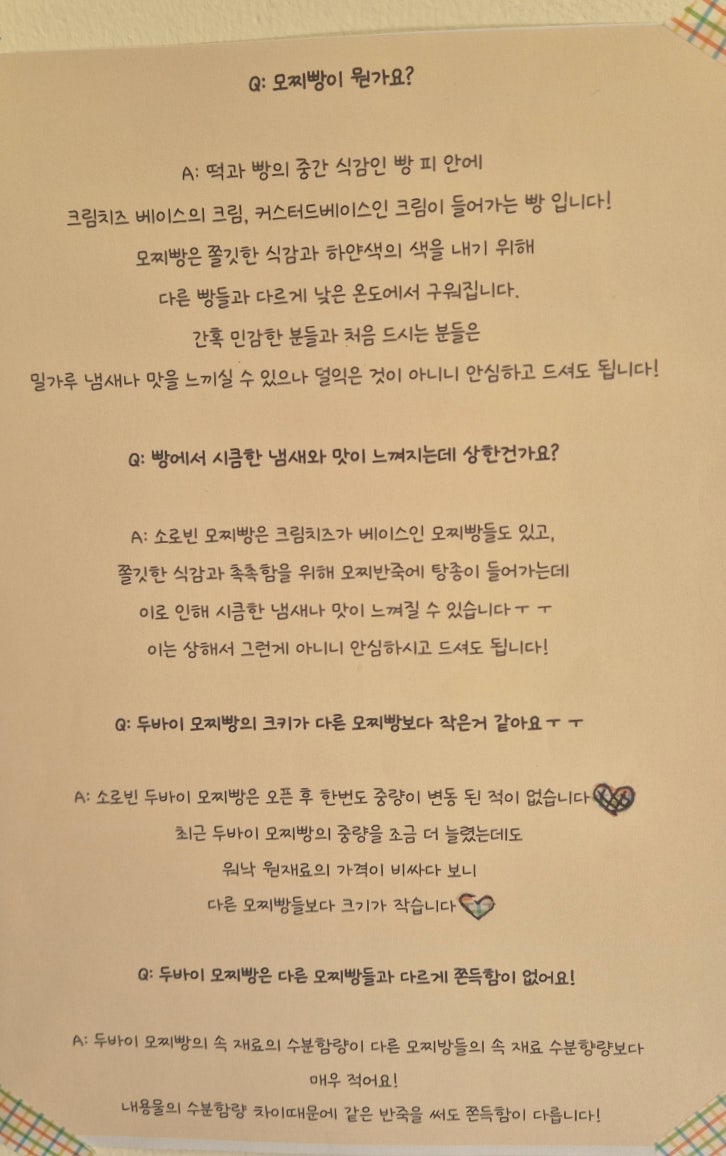 Q: 모찌빵이 뭔가요?
A: 떡과 빵의 중간 식감인 빵 피 안에
크림치즈 베이스의 크림, 커스터드베이스인 크림이 들어가는 빵 입니다!
모찌빵은 쫄깃한 식감과 하얀색의 색을 내기 위해
다른 빵들과 다르게 낮은 온도에서 구워집니다.
간혹 민감한 분들과 처음 드시는 분들은
밀가루 냄새나 맛을 느끼실 수 있으나 덜익은 것이 아니니 안심하고 드셔도 됩니다!
Q: 빵에서 시큼한 냄새와 맛이 느껴지는데 상한건가요?
A: 소로빈 모찌빵은 크림치즈가 베이스인 모찌빵들도 있고,
쫄깃한 식감과 촉촉함을 위해 모찌반죽에 탕종이 들어가는데
이로 인해 시큼한 냄새나 맛이 느껴질 수 있습니다ㅜ ㅜ
이는 상해서 그런게 아니니 안심하시고 드셔도 됩니다!
Q: 두바이 모찌빵의 크키가 다른 모찌빵보다 작은거 같아요ㅜ ㅜ
A: 소로빈 두바이 모찌빵은 오픈 후 한번도 중량이 변동 된 적이 없습니다
최근 두바이 모찌빵의 중량을 조금 더 늘렸는데도
워낙 원재료의 가격이 비싸다 보니
다른 모찌빵들보다 크기가 작습니다
Q: 두바이 모찌빵은 다른 모찌빵들과 다르게 쫀득함이 없어요!
A: 두바이 모찌빵의 속 재료의 수분함량이 다른 모찌방들의 속 재료 수분향량보다
매우 적어요!
내용물의 수분함량 차이때문에 같은 반죽을 써도 쫀득함이 다릅니다!